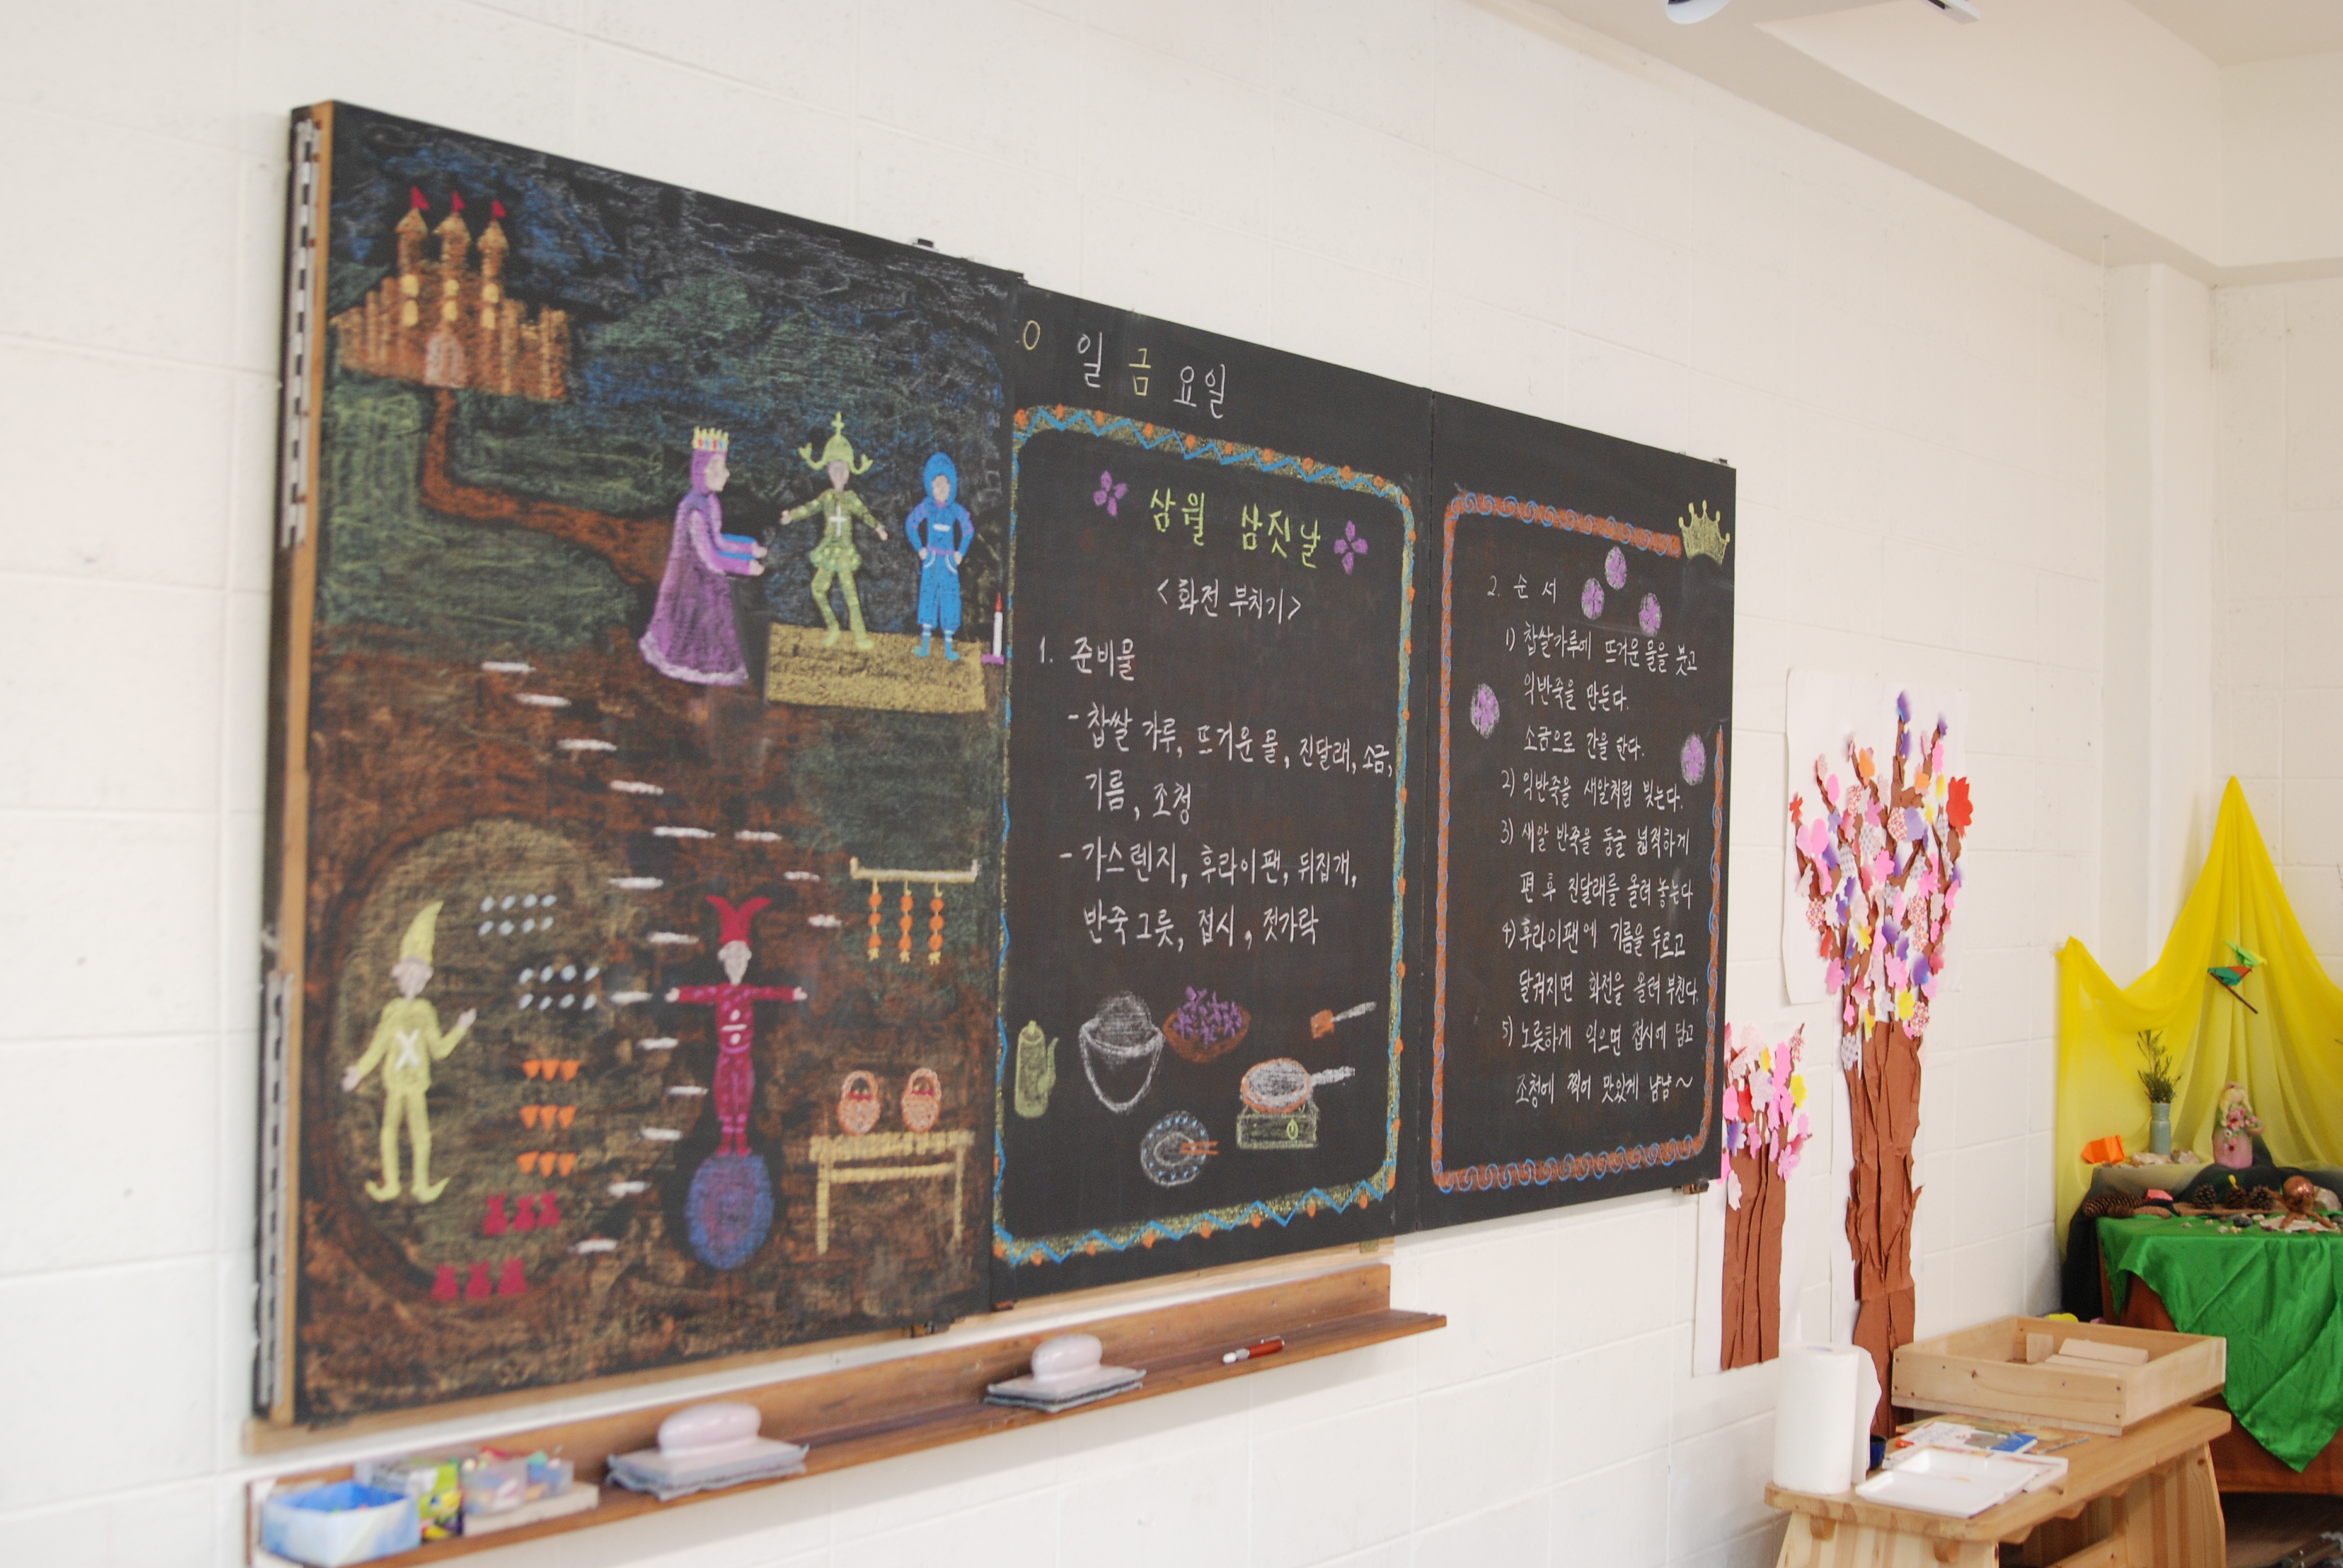 0 일 금 요일
삼월 삼짓날
<화전 부치기>
1. 준비물
- 찹쌀 가루, 뜨거운 물, 진달래, 소금,
기름, 조청
- 가스렌지, 후라이팬, 뒤집개,
반죽그릇, 접시, 젓가락
2. 순서
1) 찹쌀가루에 뜨거운 물을 붓고
익반죽을 만든다.
소금으로 간을 한다.
2) 익반죽을 새알처럼 빚는다.
3) 새알 반죽을 둥글 넓적하게
편 후 진달래를 올려 놓는다
4) 후라이팬에 기름을 두르고
달궈지면 화전을 올려 부친다.
5) 노릇하게 익으면 접시에 담고
조청에 찍어 맛있게 냠냠~
+
-
X
÷